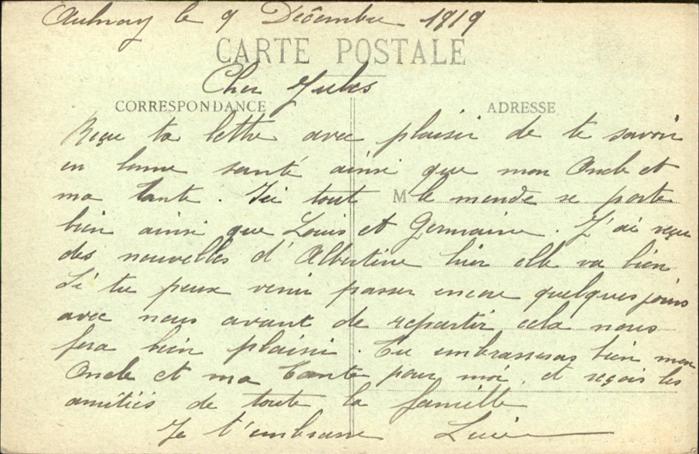 Aulnay le 9 Décembre 1919
CARTE POSTALE
Cher Jules
CORRESPONDANCE
ADRESSE
Reçue ta lettre avec plaisir de te savoir
en bonne santé ainsi que mon Oncle et
ma tante. Ici tout le monde se porte
M
bien ainsi que Louis et Germaine. J'ai reçue
des nouvelles d'Albertine hier elle va bien
Si tu peux venir passer encore quelques jours
avec nous avant de repartir cela nous
fera bien plaisir. Tu embrasseras bien mon
Oncle et ma tante pour moi, et reçois les
amitiés de toute la famille
Je t'embrasse Lucie